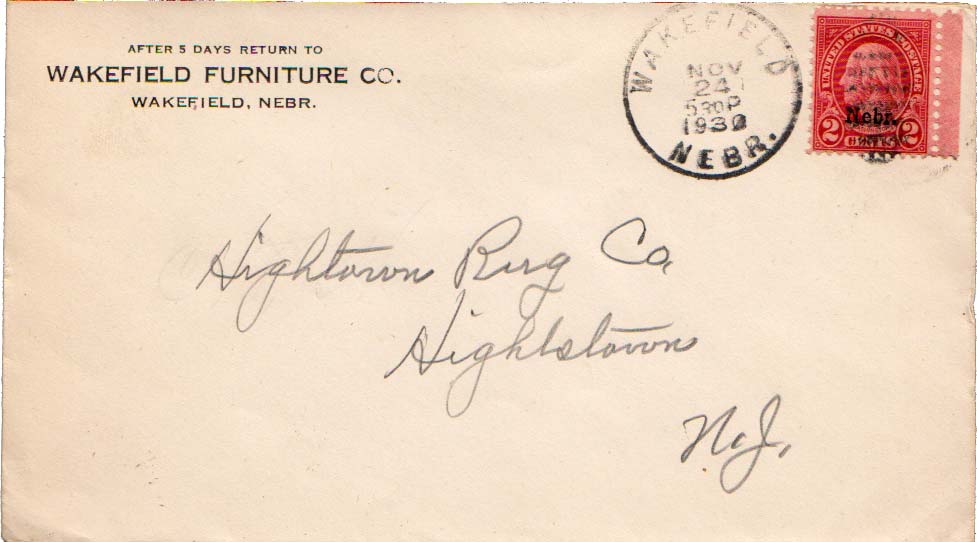 AFTER 5 DAYS RETURN TO
WAKEFIELD FURNITURE CO.
WAKEFIELD, NEBR.
WAKEFIELD
NOV
24
5 30 P
1930
NEBR.
UNITED STATES POSTAGE
Nebr.
2 CENTS 2
Hightown Rug Co,
Hightstown
N.J.